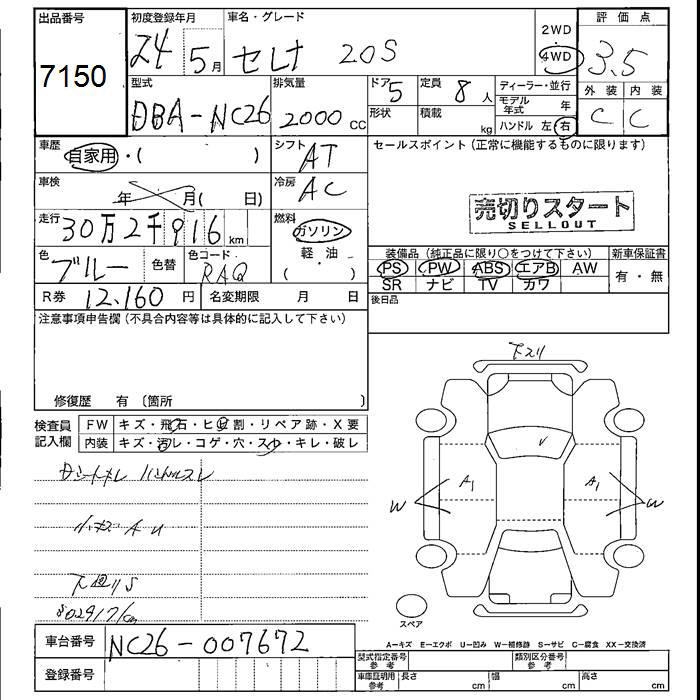 出品番号 初度登録年月 車名・グレード 2WD 評価点
7150 24 5月 セレナ 20S 4WD 3.5
型式 排気量 ドア 5 定員 8人 ディーラー・並行 外装 内装
DBA-NC26 2000cc 形状 積載 kg モデル年式 年 C C
ハンドル 左 右
車歴 自家用・( ) シフト AT セールスポイント(正常に機能するものに限ります)
車検 年 月( 日) 冷房 AC
売切りスタート
SELLOUT
走行 30万2千916km 燃料 ガソリン
軽・油
( )
色 ブルー 色替 色コード RAQ 装備品(純正品に限り○をつけて下さい) 新車保証書
PS PW ABS エアB AW 有・無
SR ナビ TV カワ
R券 12,160円 名変期限 月 日 後日品
注意事項申告欄(不具合内容等は具体的に記入して下さい)
修復歴 有〔箇所 〕
検査員記入欄 FW キズ・飛石・ヒビ割・リペア跡・X要
内装 キズ・汚レ・コゲ・穴・スレ・キレ・破レ
下スリ
V
A1 A1
W W
スペア
A=キズ E=エクボ U=凹み W=補修跡 S=サビ C=腐食 XX=交換済
車台番号 NC26-007672
登録番号
型式指定番号 参考 類別区分番号 参考
車庫証明用 参考 長さ cm 幅 cm 高さ cm